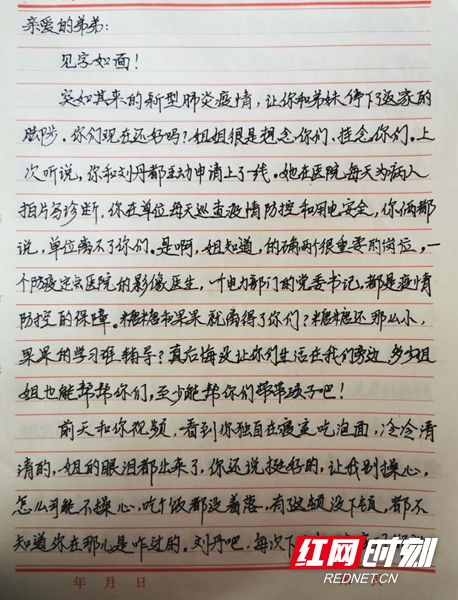 亲爱的弟弟：
见字如面！
突如其来的新型肺炎疫情，让你和弟妹停下了返家的
脚步。你们现在还好吗？姐姐很是想念你们、挂念你们。上
次听说，你和刘丹都主动申请上了一线。她在医院每天为病人
拍片与诊断，你在单位每天巡查疫情防控和用电安全，你俩都
说，单位离不了你们。是啊，姐知道，的确两个很重要的岗位，一
个防疫定点医院的影像医生，一个电力部门的党委书记，都是疫情
防控的保障。糖糖和果果就离得了你们？糖糖还那么小，
果果的学习谁辅导？真后悔没让你们生活在我们旁边，多少姐
姐也能帮帮你们，至少能帮你们带带孩子吧！
前天和你视频，看到你独自在寝室吃泡面，冷冷清
清的，姐的眼泪都出来了，你还说挺好的，让我别操心，
怎么可能不操心，吃个饭都没着落，有这顿没下顿，都不
知道你在那儿是咋过的。刘丹吧，每次下
年 月 日
红网时刻
REDNET.CN